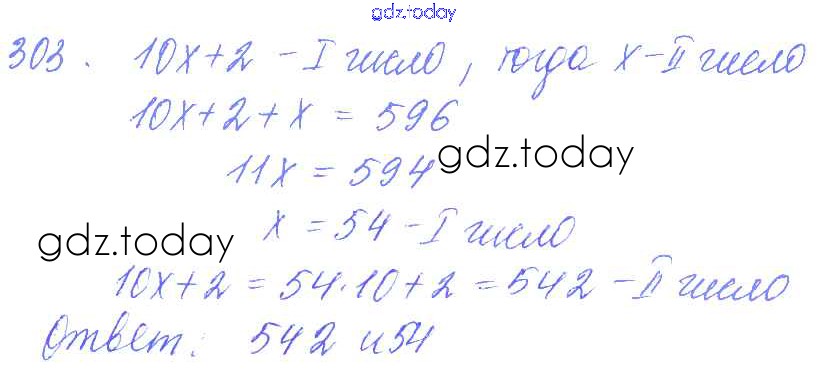 gdz.today
303. 10x+2 - I число, тогда x - II число
10x+2+x = 596
11x = 594 gdz.today
gdz.today x = 54 - I число
10x+2 = 54·10+2 = 542 - II число
Ответ: 542 и 54